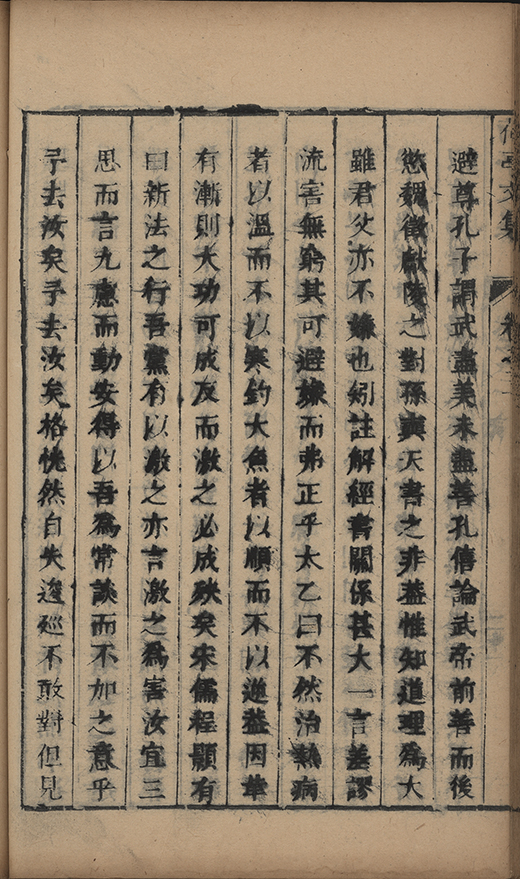 避尊孔子謂武盡美未盡善孔僖論武帝前善而後
慾魏徵獻陵之對孫奭天書之非葢惟知道理為大
雖君父亦不嫌也矧註解經書關係甚大一言差謬
流害無窮其可避嫌而弗正乎太乙曰不然治熱病
者以溫而不以寒釣大魚者以順而不以逆葢因革
有漸則大功可成反而激之必成殃矣宋儒程顥有
曰新法之行吾黨有以激之亦言激之為害汝宜三
思而言九慮而動安得以吾為常談而不加之意乎
予去汝矣予去汝矣格恍然自失逡巡不敢對但見
文集
卷之